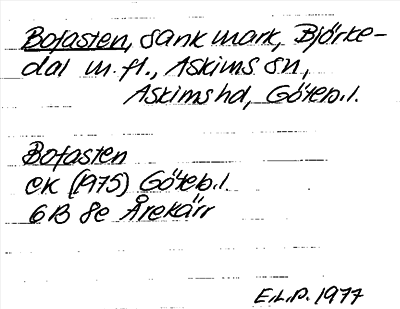 Bofasten, sank mark, Björke-
dal m.fl., Askims sn,
Askims hd, Göteb.l.
Bofasten
ek (1975) Göteb.l.
6B 8e Årekärr
E.L.P. 1977